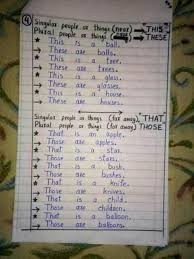 ④ Singular people or things (near) → THIS
Plural people or things (near) → THESE
★ This is a ball.
→ These are balls.
★ This is a tree.
→ These are trees.
★ This is a glass.
→ These are glasses.
★ This is a house.
→ These are houses.
Singular people or things (far away) THAT
Plural people or things (far away) THOSE
★ That is an apple.
→ Those are apples.
★ That is a star.
→ Those are stars.
★ That is a bush.
→ Those are bushes.
★ That is a knife.
→ Those are knives.
★ That is a child.
→ Those are children.
★ That is a balloon.
→ Those are balloons.